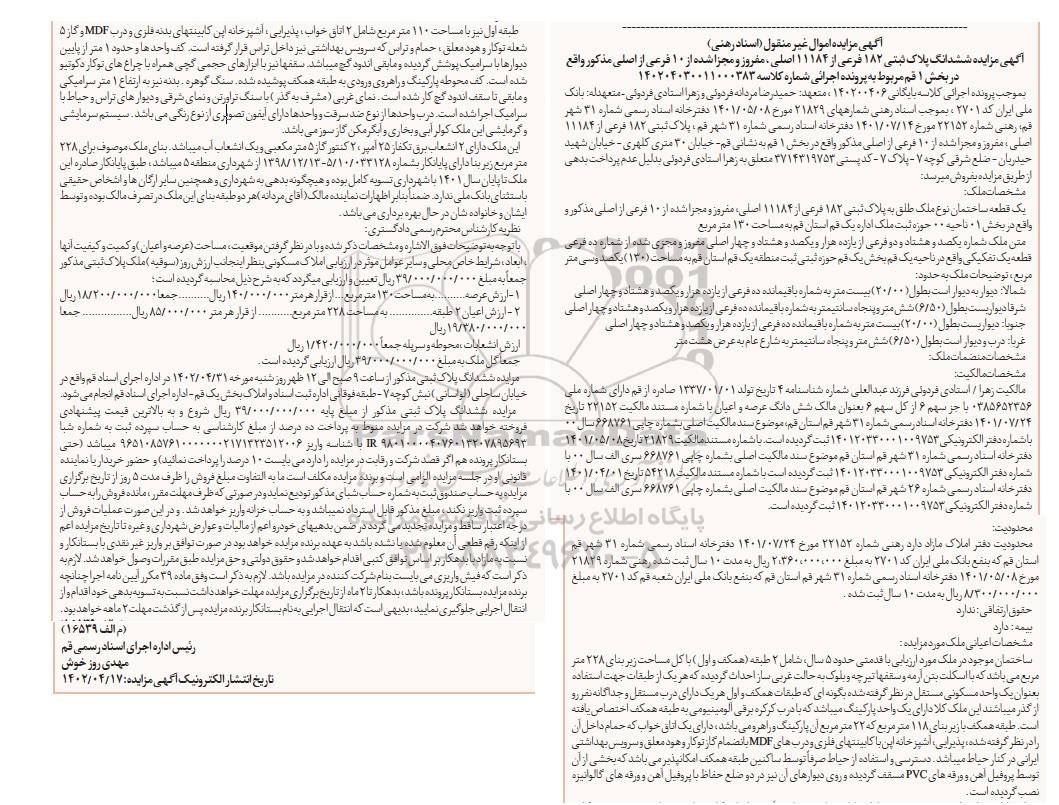 آگهی مزایده اموال غیر منقول (اسناد رهنی)
آگهی مزایده ششدانگ پلاک ثبتی ۱۸۲ فرعی از ۱۱۱۸۴ اصلی، مفروز و مجزا شده از ۱۰ فرعی از اصلی مذکور واقع
در بخش ۱ قم مربوط به پرونده اجرائی شماره کلاسه ۱۴۰۲۰۴۰۳۰۰۱۱۰۰۰۳۸۳
بموجب پرونده اجرائی کلاسه بایگانی ۱۴۰۲۰۰۴۰۶ ؛ متعهد: حمیدرضا مردانه فردوئی و زهرا استادی فردوئی-متعهدله: بانک
ملی ایران کد ۲۷۰۱ ، بموجب اسناد رهنی شمارههای ۲۱۸۲۹ مورخ ۱۴۰۱/۰۵/۰۸ دفترخانه اسناد رسمی شماره ۳۱ شهر
قم، رهنی شماره ۲۲۱۵۲ مورخ ۱۴۰۱/۰۷/۱۴ دفترخانه اسناد رسمی شماره ۳۱ شهر قم ، پلاک ثبتی ۱۸۲ فرعی از ۱۱۱۸۴
اصلی ، مفروز و مجزا شده از ۱۰ فرعی از اصلی مذکور واقع در بخش ۱ قم به نشانی قم- خیابان ۳۰ متری کلهری - خیابان شهید
حیدریان - ضلع شرقی کوچه ۷ - پلاک ۷ - کد پستی ۳۷۱۴۳۱۹۷۵۳ متعلق به زهرا استادی فردوئی بدلیل عدم پرداخت بدهی
از طریق مزایده بفروش میرسد:
مشخصات ملک:
یک قطعه ساختمان نوع ملک طلق به پلاک ثبتی ۱۸۲ فرعی از ۱۱۱۸۴ اصلی، مفروز و مجزا شده از ۱۰ فرعی از اصلی مذکور و
واقع در بخش ۰۱ ناحیه ۰۰ حوزه ثبت ملک اداره یک قم استان قم به مساحت ۱۳۰ متر مربع
متن ملک شماره یکصد و هشتاد و دو فرعی از یازده هزار و یکصد و هشتاد و چهار اصلی مفروز و مجزی شده از شماره ده فرعی
قطعه یک تفکیکی واقع در ناحیه یک قم بخش یک قم حوزه ثبتی ثبت منطقه یک قم استان قم به مساحت (۱۳۰) یکصد و سی متر
مربع ، توضیحات ملک به حدود:
شمالا: دیوار به دیوار است بطول (۲۰/۰۰) بیست متر به شماره باقیمانده ده فرعی از یازده هزار و یکصد و هشتاد و چهار اصلی
شرقا دیواریست بطول (۶/۵۰) شش متر و پنجاه سانتیمتر به شماره باقیمانده ده فرعی از یازده هزار و یکصد و هشتاد و چهار اصلی
جنوبا: دیواریست بطول (۲۰/۰۰) بیست متر به شماره باقیمانده ده فرعی از یازده هزار و یکصد و هشتاد و چهار اصلی
غربا: درب و دیوار است بطول (۶/۵۰) شش متر و پنجاه سانتیمتر به شارع عام به عرض هشت متر
مشخصات منضمات ملک:
مشخصات مالکیت:
مالکیت زهرا / استادی فردوئی فرزند عبدالعلی شماره شناسنامه ۴ تاریخ تولد ۱۳۳۷/۰۱/۰۱ صادره از قم دارای شماره ملی
۰۳۸۵۶۵۲۳۵۶ با جز سهم ۶ از کل سهم ۶ بعنوان مالک شش دانگ عرصه و اعیان با شماره مستند مالکیت ۲۲۱۵۲ تاریخ
۱۴۰۱/۰۷/۲۴ دفترخانه اسناد رسمی شماره ۳۱ شهر قم استان قم، موضوع سند مالکیت اصلی بشماره چاپی ۶۶۸۷۶۱ سال ۰۰
با شماره دفتر الکترونیکی ۱۴۰۱۲۰۳۳۰۰۰۱۰۰۹۷۵۳ ثبت گردیده است. با شماره مستند مالکیت ۲۱۸۲۹ تاریخ ۱۴۰۱/۰۵/۰۸
دفترخانه اسناد رسمی شماره ۳۱ شهر قم استان قم موضوع سند مالکیت اصلی بشماره چاپی ۶۶۸۷۶۱ سری الف سال ۰۰ با
شماره دفتر الکترونیکی ۱۴۰۱۲۰۳۳۰۰۰۱۰۰۹۷۵۳ ثبت گردیده است با شماره مستند مالکیت ۵۴۲۱۸ تاریخ ۱۴۰۱/۰۴/۰۱
دفترخانه اسناد رسمی شماره ۲۶ شهر قم استان قم موضوع سند مالکیت اصلی بشماره چاپی ۶۶۸۷۶۱ سری الف سال ۰۰ با
شماره دفتر الکترونیکی ۱۴۰۱۲۰۳۳۰۰۰۱۰۰۹۷۵۳ ثبت گردیده است.
محدودیت:
محدودیت دفتر املاک مازاد دارد رهنی شماره ۲۲۱۵۲ مورخ ۱۴۰۱/۰۷/۲۴ دفترخانه اسناد رسمی شماره ۳۱ شهر قم
استان قم که بنفع بانک ملی ایران کد ۲۷۰۱ به مبلغ ۲،۳۶۰،۰۰۰،۰۰۰ ریال به مدت ۱۰ سال ثبت شده رهنی شماره ۲۱۸۲۹
مورخ ۱۴۰۱/۰۵/۰۸ دفترخانه اسناد رسمی شماره ۳۱ شهر قم استان قم که بنفع بانک ملی ایران شعبه قم کد ۲۷۰۱ به مبلغ
۸/۳۰۰/۰۰۰/۰۰۰ ریال به مدت ۱۰ سال ثبت شده .
حقوق ارتفاقی : ندارد
بیمه : دارد
مشخصات اعیانی ملک مورد مزایده :
ساختمان موجود در ملک مورد ارزیابی با قدمتی حدود ۵ سال، شامل ۲ طبقه (همکف و اول) با کل مساحت زیر بنای ۲۲۸ متر
مربع می باشد که با اسکلت بتن آرمه و سقفها تیرچه و بلوک به حالت غربی ساز احداث گردیده که هر یک از طبقات جهت استفاده
بعنوان یک واحد مسکونی مستقل در نظر گرفته شده بگونه ای که طبقات همکف و اول هر یک دارای درب مستقل و جداگانه نفر رو
از گذر میباشند این ملک کلا دارای یک واحد پارکینگ میباشد که با درب کرکره برقی آلومینیومی به طبقه همکف اختصاص یافته
است. طبقه همکف با زیر بنای ۱۱۸ متر مربع که ۲۲ متر مربع آن پارکینگ و راهرو می باشد ، دارای یک اتاق خواب که حمام داخل آن
را در نظر گرفته شده ، پذیرایی، آشپزخانه اپن با کابینتهای فلزی و درب های MDF بانضمام گاز توکار و هود معلق و سرویس بهداشتی
ایرانی در کنار حیاط میباشد. دسترسی و استفاده از حیاط صرفاً توسط ساکنین طبقه همکف امکانپذیر می باشد که بخشی از آن
توسط پروفیل آهن و ورقه های PVC مسقف گردیده و روی دیوارهای آن نیز در دو ضلع حفاظ با پروفیل آهن و ورقه های گالوانیزه
نصب گردیده است.
طبقه اول نیز با مساحت ۱۱۰ متر مربع شامل ۲ اتاق خواب ، پذیرایی ، آشپزخانه اپن کابینتهای بدنه فلزی و درب MDF و گاز ۵
شعله توکار و هود معلق ، حمام و تراس که سرویس بهداشتی نیز داخل تراس قرار گرفته است. کف واحدها و حدود ۱ متر از پایین
دیوارها با سرامیک پوشش گردیده و مابقی اندود گچ میباشد. سقفها نیز با ابزارهای حجمی گچی همراه با چراغ های توکار دکوتیو
شده است. کف محوطه پارکینگ و راهروی ورودی به طبقه همکف پوشیده شده . سنگ گوهره . بدنه نیز به ارتفاع ۱ متر سرامیکی
و مابقی تا سقف اندود گچ کار شده است . نمای غربی (مشرف به گذر ) با سنگ تراورتن و نمای شرقی و دیوار های تراس و حیاط با
سرامیک اجرا شده است. درب واحدها از نوع ضد سرقت و واحدها دارای آیفون تصویری از نوع رنگی می باشد . سیستم سرمایشی
و گرمایشی این ملک کولر آبی و بخاری و آبگرمکن گاز سوز می باشد.
این ملک دارای ۲ انشعاب برق تکفاز ۲۵ آمپر ، ۲ کنتور گاز ۵ متر مکعبی و یک انشعاب آب میباشد. بنای ملک موصوف برای ۲۲۸
متر مربع زیر بنا دارای پایانکار بشماره ۵/۱۰/۰۳۳۱۲۸-۱۳۹۸/۱۲/۱۳ از شهرداری منطقه ۵ میباشد ، طبق پایانکار صادره این
ملک تا پایان سال ۱۴۰۱ با شهرداری تسویه کامل بوده و هیچگونه بدهی به شهرداری و همچنین سایر ارگان ها و اشخاص حقیقی
باستثنای بانک ملی ندارد. ضمنا بنابر اظهارات نماینده مالک (آقای مردانه) هر دو طبقه بنای این ملک در تصرف مالک بوده و توسط
ایشان و خانواده شان در حال بهره برداری می باشد .
نظریه کارشناس محترم رسمی دادگستری :
با توجه به توضیحات فوق الاشاره و مشخصات ذکر شده و با در نظر گرفتن موقعیت ، مساحت (عرصه و اعیان ) و کمیت و کیفیت آنها
، ابعاد ، شرایط خاص محلی و سایر عوامل موثر در ارزیابی املاک مسکونی بنظر اینجانب ارزش روز (سوقیه ) ملک پلاک ثبتی مذکور
جمعا به مبلغ ۳۹/۰۰۰/۰۰۰/۰۰۰ ریال تعیین و ارزیابی میگردد که به شرح ذیل محاسبه گردیده است ؛
۱- ارزش عرصه .......... به مساحت ۱۳۰ متر مربع ... از قرار هر متر ۱۴۰/۰۰۰/۰۰۰ ریال .......... جمعا ۱۸/۲۰۰/۰۰۰/۰۰۰ ریال
۲- ارزش اعیان ۲ طبقه .............. به مساحت ۲۲۸ متر مربع .......... از قرار هر متر ۸۵/۰۰۰/۰۰۰ ریال .................. جمعا
۱۹/۳۸۰/۰۰۰/۰۰۰ ریال
ارزش انشعابات ، محوطه و سرپله جمعاً ۱/۴۲۰/۰۰۰/۰۰۰ ریال
جمعاً کل ملک به مبلغ ۳۹/۰۰۰/۰۰۰/۰۰۰ ریال ارزیابی گردیده است .
مزایده ششدانگ پلاک ثبتی مذکور از ساعت ۹ صبح الی ۱۲ ظهر روز شنبه مورخه ۱۴۰۲/۰۴/۳۱ در اداره اجرای اسناد قم واقع در
خیابان ساحلی (لواسانی) نبش کوچه ۷ - طبقه فوقانی اداره ثبت اسناد و املاک بخش یک قم - اداره اجرای اسناد قم انجام می شود.
مزایده ششدانگ پلاک ثبتی مذکور از مبلغ پایه ۳۹/۰۰۰/۰۰۰/۰۰۰ ریال شروع و به بالاترین قیمت پیشنهادی
فروخته خواهد شد شرکت در مزایده منوط به پرداخت ده درصد از مبلغ کارشناسی به حساب سپرده ثبت به شماره شبا
IR با شناسه واریز میباشد (حتی
بستانکار پرونده هم اگر قصد شرکت و رقابت در مزایده را دارد می بایست ۱۰ درصد را پرداخت نمائید) و حضور خریدار یا نماینده
قانونی او در جلسه مزایده الزامی است و برنده مزایده مکلف است ما به التفاوت مبلغ فروش را ظرف مدت ۵ روز از تاریخ برگزاری
مزایده به حساب صندوق ثبت به شماره حساب شبای مذکور تودیع نماید و در صورتی که ظرف مهلت مقرر ، مانده فروش را به حساب
سپرده ثبت واریز نکند ، مبلغ مذکور قابل استرداد نمیباشد و به حساب خزانه واریز خواهد شد . و در این صورت عملیات فروش از
درجه اعتبار ساقط و مزایده تجدید می گردد در ضمن بدهیهای خودرو اعم از مالیات و عوارض شهرداری و غیره تا تاریخ مزایده اعم
از اینکه رقم قطعی آن معلوم شده یا نشده باشد به عهده برنده مزایده خواهد بود در صورت توافق بر واریز غیر نقدی با بستانکار و
نسبت به مازاد با بدهکار بر اساس توافق کتبی اقدام خواهد شد و حقوق دولتی و حق مزایده طبق مقررات وصول خواهد شد. لازم به
ذکر است که فیش واریزی می بایست بنام شرکت کننده در مزایده باشد. لازم به ذکر است وفق ماده ۳۹ مکرر آیین نامه اجرا چنانچه
برنده مزایده بستانکار پرونده باشد ، بدهکار تا ۲ ماه از تاریخ برگزاری مزایده مهلت خواهد داشت نسبت به تسویه بدهی خود اقدام و از
انتقال اجرایی جلوگیری نمایید ، بدیهی است که انتقال اجرایی به نام بستانکار برنده مزایده پس از گذشت مهلت ۲ ماهه خواهد بود.
(م الف ۱۶۵۳۹)
رئیس اداره اجرای اسناد رسمی قم
مهدی روز خوش
تاریخ انتشار الکترونیک آگهی مزایده: ۱۴۰۲/۰۴/۱۷